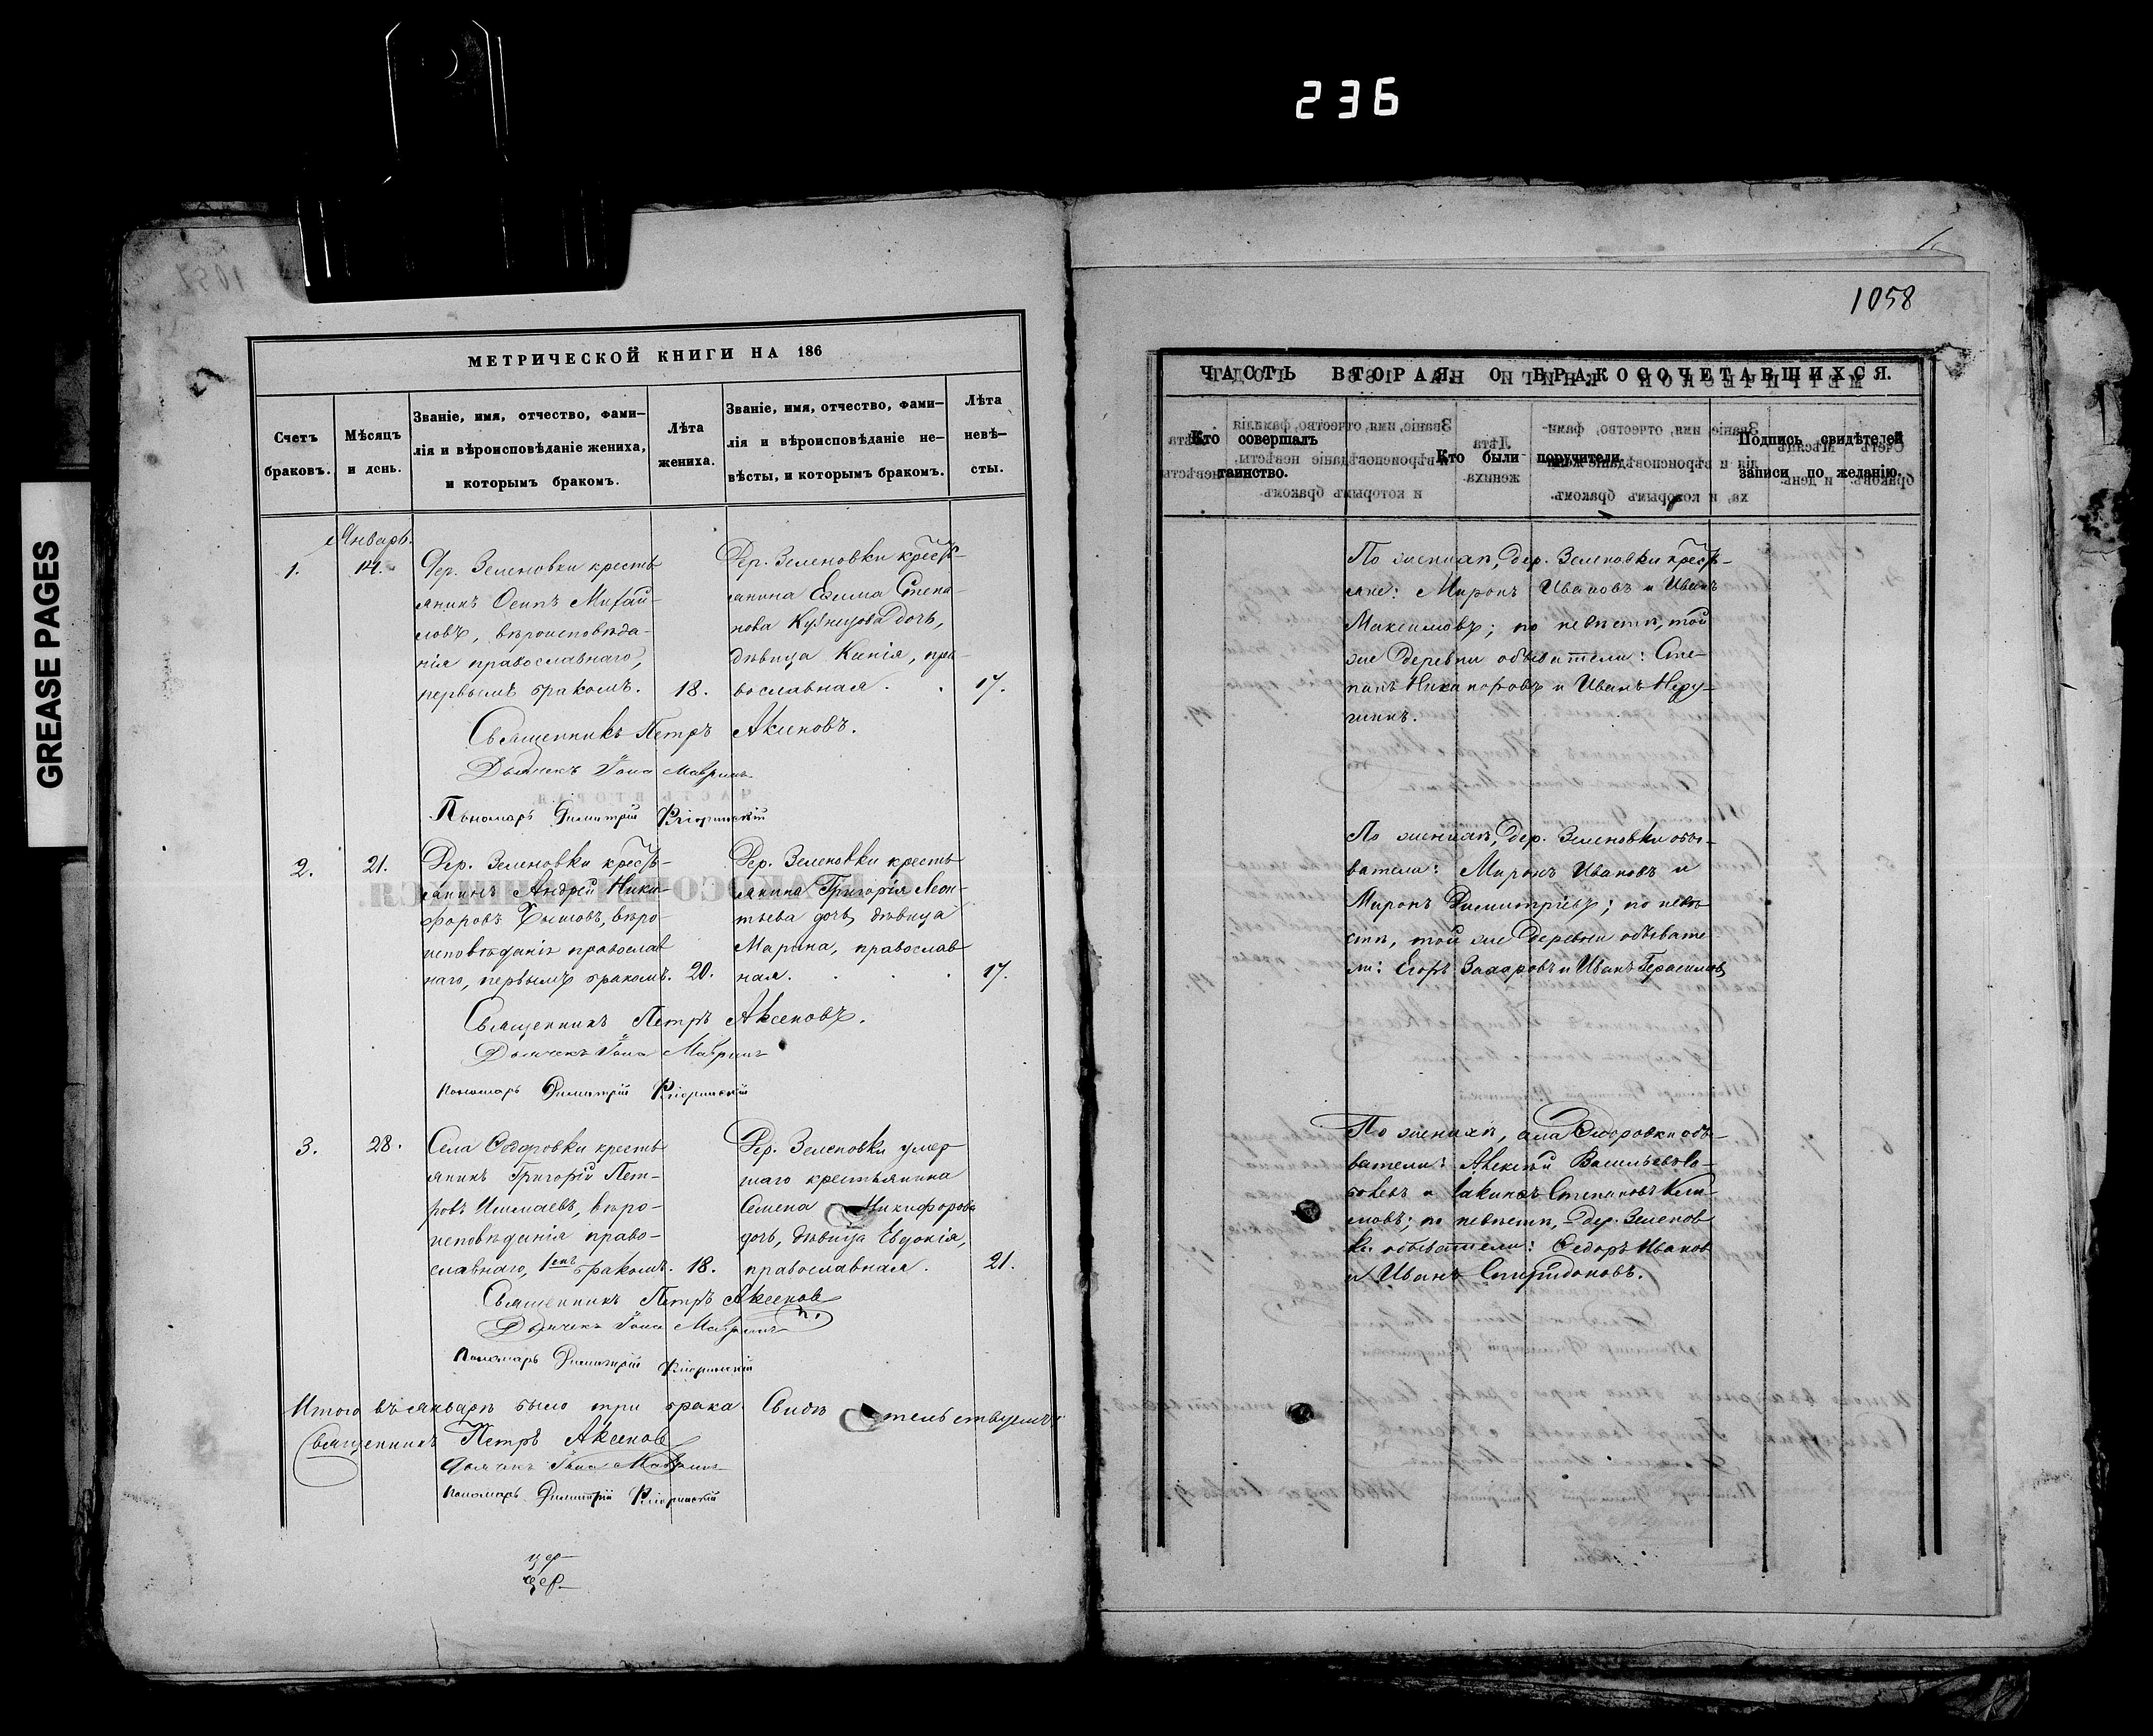 236
GREASE PAGES
МЕТРИЧЕСКОЙ КНИГИ НА 186
Счетъ браковъ.
Мѣсяцъ и день.
Званіе, имя, отчество, фами-
лія и вѣроисповѣданіе жениха,
и которымъ бракомъ.
Лѣта жениха.
Званіе, имя, отчество, фами-
лія и вѣроисповѣданіе не-
вѣсты, и которымъ бракомъ.
Лѣта невѣ-
сты.
Январь.
1.
14.
Дер. Зеленовки кресть
янинъ Осипъ Михай-
ловъ, вѣроисповѣда-
нія православнаго,
первымъ бракомъ.
18.
Дер. Зеленовки кресть-
янина Екима Степа-
нова Кузнецова дочь,
дѣвица Ксенія, пра-
вославная.
17.
Священникъ Петръ Аксеновъ.
Дьячекъ Іона Мавринъ
Пономарь Димитрій
2.
21.
Дер. Зеленовки кресть-
янинъ Андрей Ники-
форовъ вѣро-
исповѣданія православ
наго, первымъ бракомъ.
20.
Дер. Зеленовки кресть
янина Григорія Леон-
тьева дочь, дѣвица
Марина, православ
ная.
17.
Священникъ Петръ Аксеновъ.
Дьячекъ Іона Мавринъ
Пономарь Димитрій
3.
28.
Села Федоровки кресть
янинъ Григорій Пет-
ровъ Ишмаевъ, вѣро-
исповѣданія право-
славнаго, 1емъ бракомъ.
18.
Дер. Зеленовки умер
шаго крестьянина
Семена Никифорова
дочь, дѣвица Евдокія,
православная.
21.
Священникъ Петръ Аксенов
Дьячекъ Іона Мавринъ
Пономарь Димитрій
Итого въ январѣ было три брака. Свидѣтельствуемъ:
Священникъ Петръ Аксенов
Дьячекъ Іона Мавринъ
Пономарь Димитрій
1058
ЧАСТЬ ВТОРАЯ, О БРАКОСОЧЕТАВШИХСЯ.
Кто совершалъ
таинство.
Кто были поручители.
Подпись свидѣтелей
записи по желанію.
По женихѣ, дер. Зеленовки кресть-
яне: Миронъ Ивановъ и Иванъ
Максимовъ; по невѣстѣ, той
же деревни обыватели: Сте-
панъ Никаноровъ и Иванъ
По женихѣ, дер. Зеленовки обы-
ватели: Миронъ Ивановъ и
Миронъ Димитріевъ; по невѣ
стѣ, той же деревни обывате
ли: Егоръ Захаровъ и Иванъ Герасимов
По женихѣ, села Федоровки обы-
ватели: Алексѣй Васильевъ
и Іакинъ Степановъ Кли-
мовъ; по невѣстѣ, дер. Зеленов
ки обыватели: Федоръ Иванов
и Иванъ Спиридоновъ.